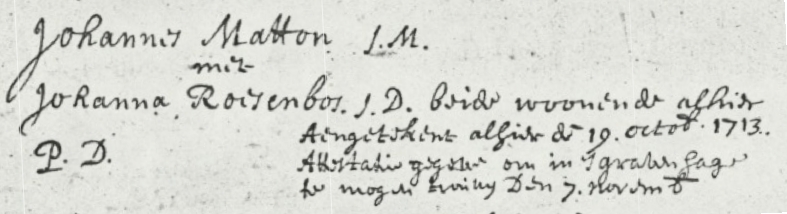 Johannes Matton J.M.
met
Johanna Roesenbos. J.D. beide woonende alhier
Aengetekent alhier de 19. octob. 1713.
P. D.
Attestatie gegeven om in S gravenhage
te mogen trouwen Den 7. novemb